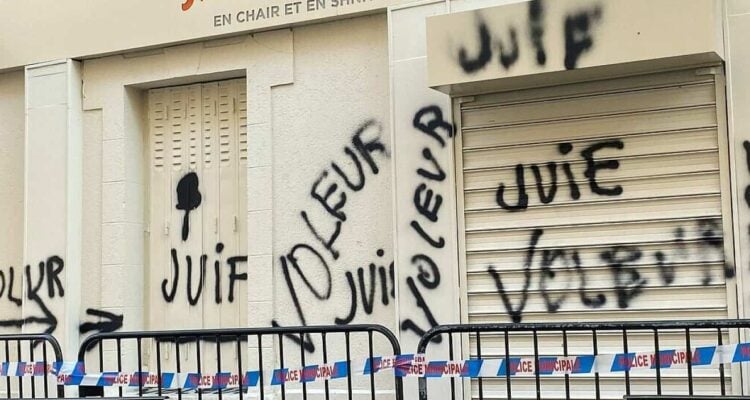 EN CHAIR ET EN
JUIF
JUIF
VOLEUR
JUIF
VOLEUR
JUIE
VOLEUR
POLICE MUNICIPALE
POLICE MUNICIPALE
POLICE MUNICIPALE
POLICE MUNICIPALE